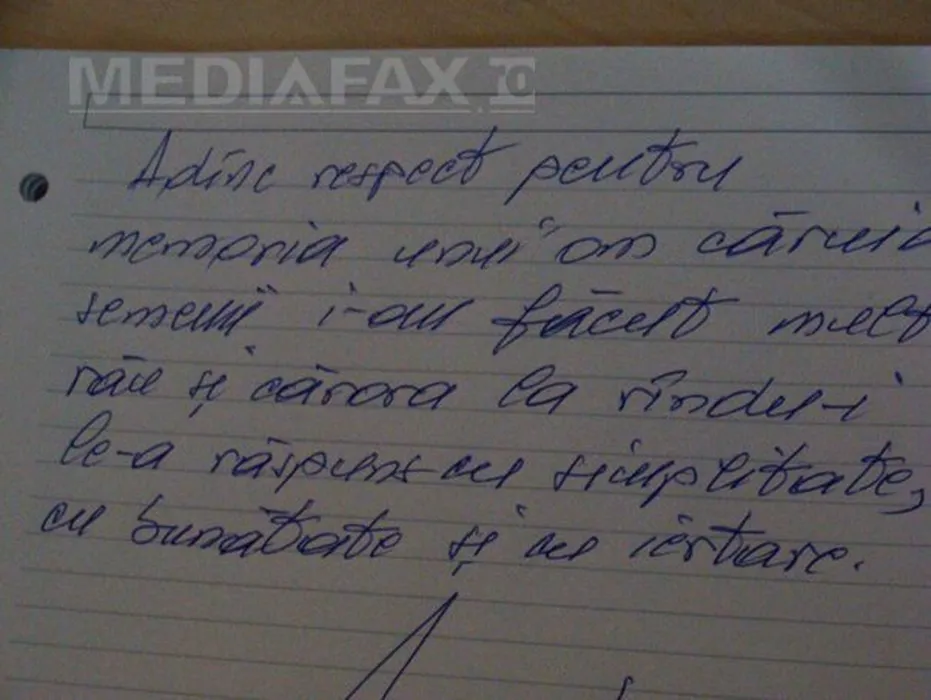 MEDIAFAX.ro
Adînc respect pentru
memoria unui om căruia
semenii i-au făcut mult
rău și cărora la rîndu-i
le-a răspuns cu simplitate,
cu bunătate și cu iertare.